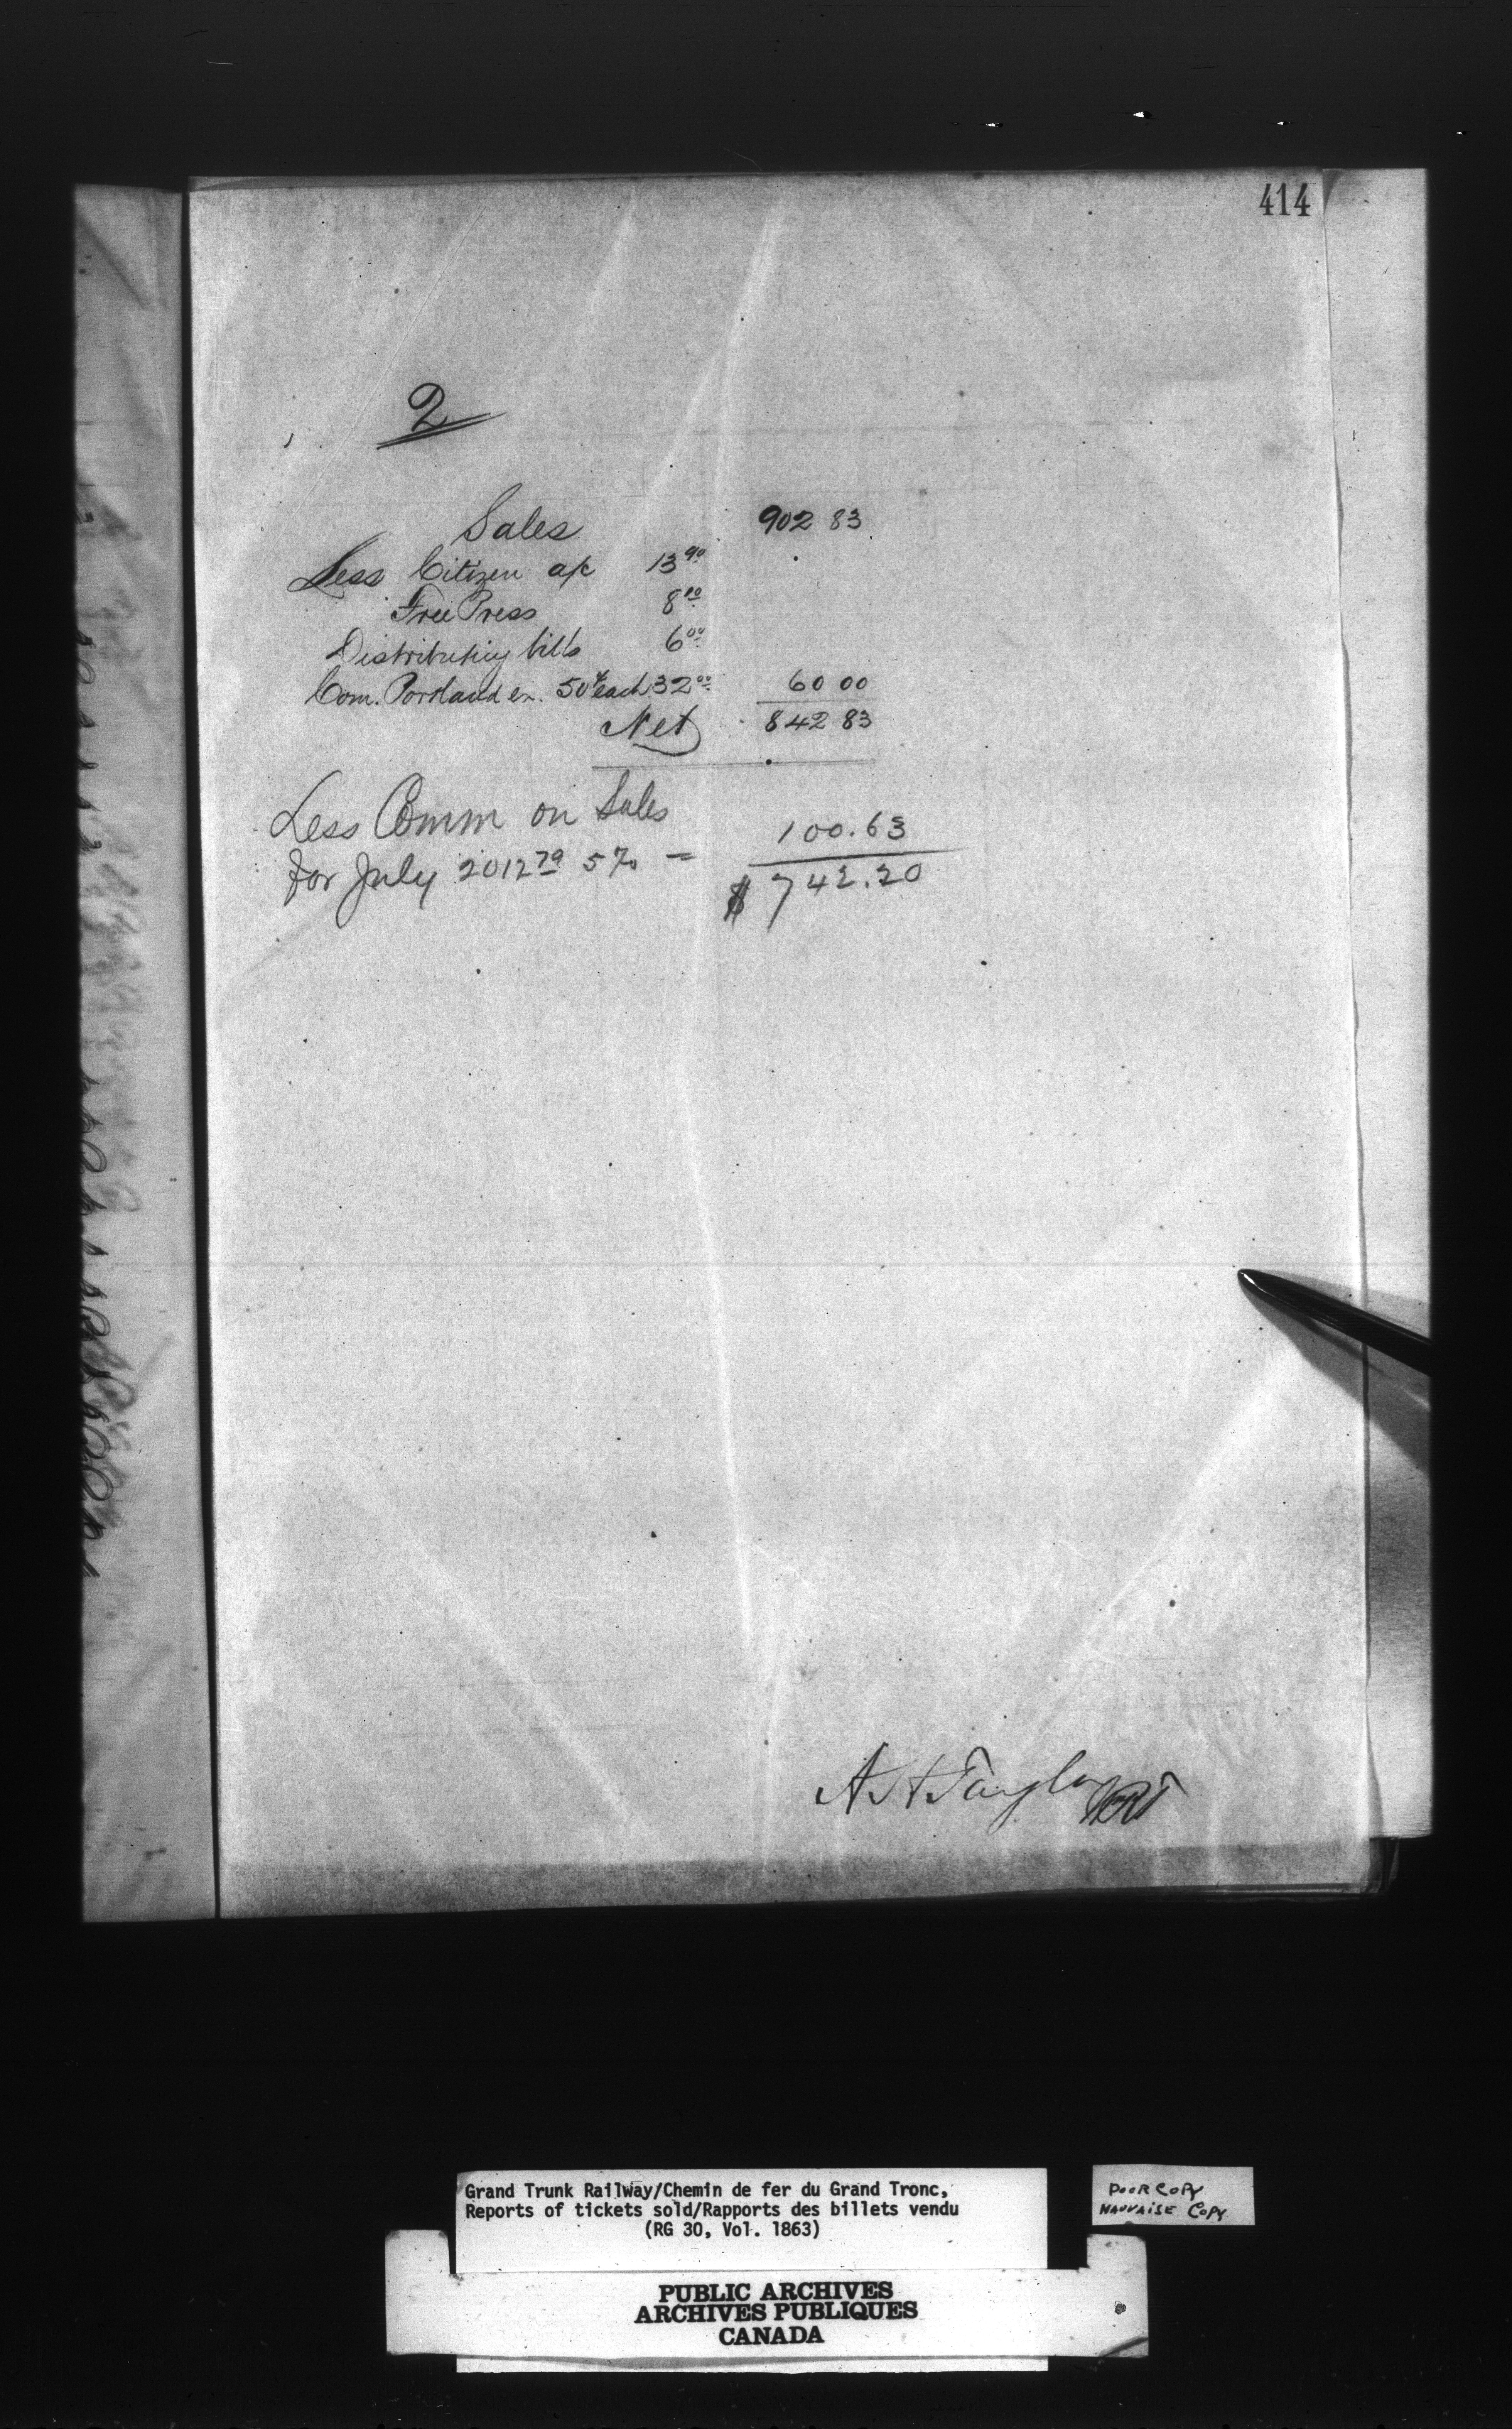 414
2
Sales 902 83
Less Citizen a/c 13 90
Free Press 8 10
Distributing bills 6 00
Com. Portland ex. 50¢ each 32 00 60 00
Net 842 83
Less Comm on Sales
for July 2012 79 5% = 100.63
$ 742.20
A H Taylor
Grand Trunk Railway/Chemin de fer du Grand Tronc,
Reports of tickets sold/Rapports des billets vendu
(RG 30, Vol. 1863)
POOR COPY
MAUVAISE COPY
PUBLIC ARCHIVES
ARCHIVES PUBLIQUES
CANADA